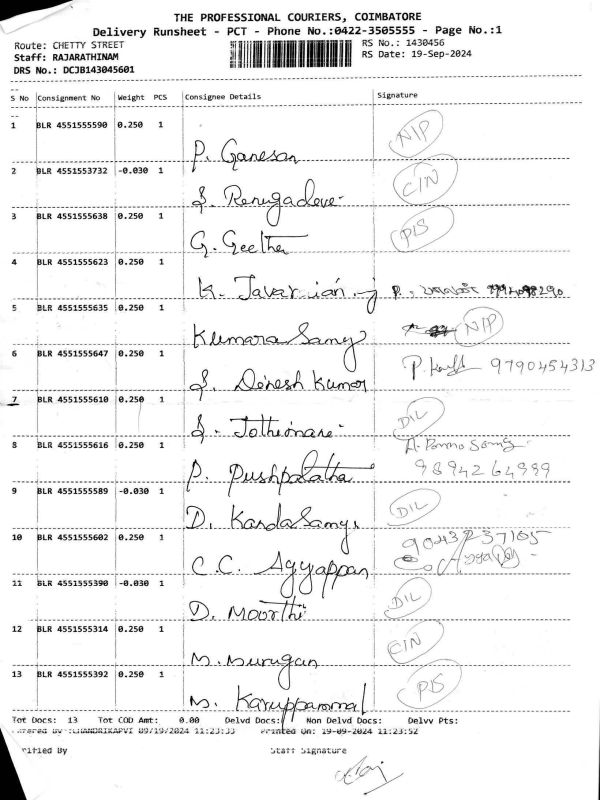 THE PROFESSIONAL COURIERS, COIMBATORE
Delivery Runsheet - PCT - Phone No.:0422-3505555 - Page No.:1
Route: CHETTY STREET RS No.: 1430456
Staff: RAJARATHINAM RS Date: 19-Sep-2024
DRS No.: DCJB143045601
S No Consignment No Weight PCS Consignee Details Signature
1 BLR 4551555590 0.250 1 P. Ganesan NIP
2 BLR 4551553732 -0.030 1 S. Renugadeve CIN
3 BLR 4551555638 0.250 1 G. Geetha PIS
4 BLR 4551555623 0.250 1 K. P.
5 BLR 4551555635 0.250 1 Kumara Samy NIP
6 BLR 4551555647 0.250 1 S. Dinesh Kumar P. 9790454313
7 BLR 4551555610 0.250 1 S. DIL
8 BLR 4551555616 0.250 1 P. Pushpalatha A. Ponno Samy
9894264999
9 BLR 4551555589 -0.030 1 D. Kanda Samy DIL
10 BLR 4551555602 0.250 1 C.C. Ayyappan 9043237105
11 BLR 4551555390 -0.030 1 D. Moorthi DIL
12 BLR 4551555314 0.250 1 M. Murugan CIN
13 BLR 4551555392 0.250 1 M. Karuppammal PIS
Tot Docs: 13 Tot COD Amt: 0.00 Delvd Docs: Non Delvd Docs: Delvv Pts:
09/19/2024 11:23:33 Printed On: 19-09-2024 11:23:52
By Staff Signature